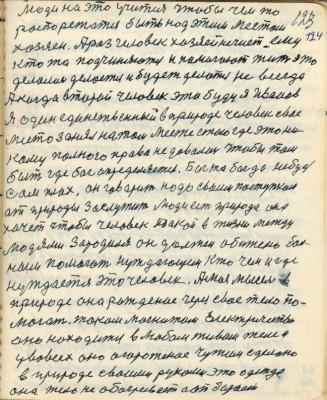 Люди на это учится чтобы чем то 123
роспорежатся быть над этим местом 124
хозяен. А раз человек хозяйнечиет ему
кто та подчиняются и помогают жить это
делали делаети и будет делоть не всегда
А когда второй человек эта буду я Иванов
Я один единственный в природе человек свае
место занял на том месте стаю где это ни
кому полного права не довалось чтобы там
быть где бог определяется. Быть то богом небуду
сам так, он говорит надо своим поступком
от природы Заслужит людие природа она
хочет чтобы человек такой в жизни между
людями Зародился он должен обитело бол
ным помогат нуждающем кто чем и где
нуждается это человек. А моя мысел
природе она рождение через свае тело по-
могат. токам магнитом Електричество
оно находити в любом живом теле а
увсвех оно огороженое чужим сделоно
в природе своими рукоми это одежда
она тело не обогревает а от бераеи